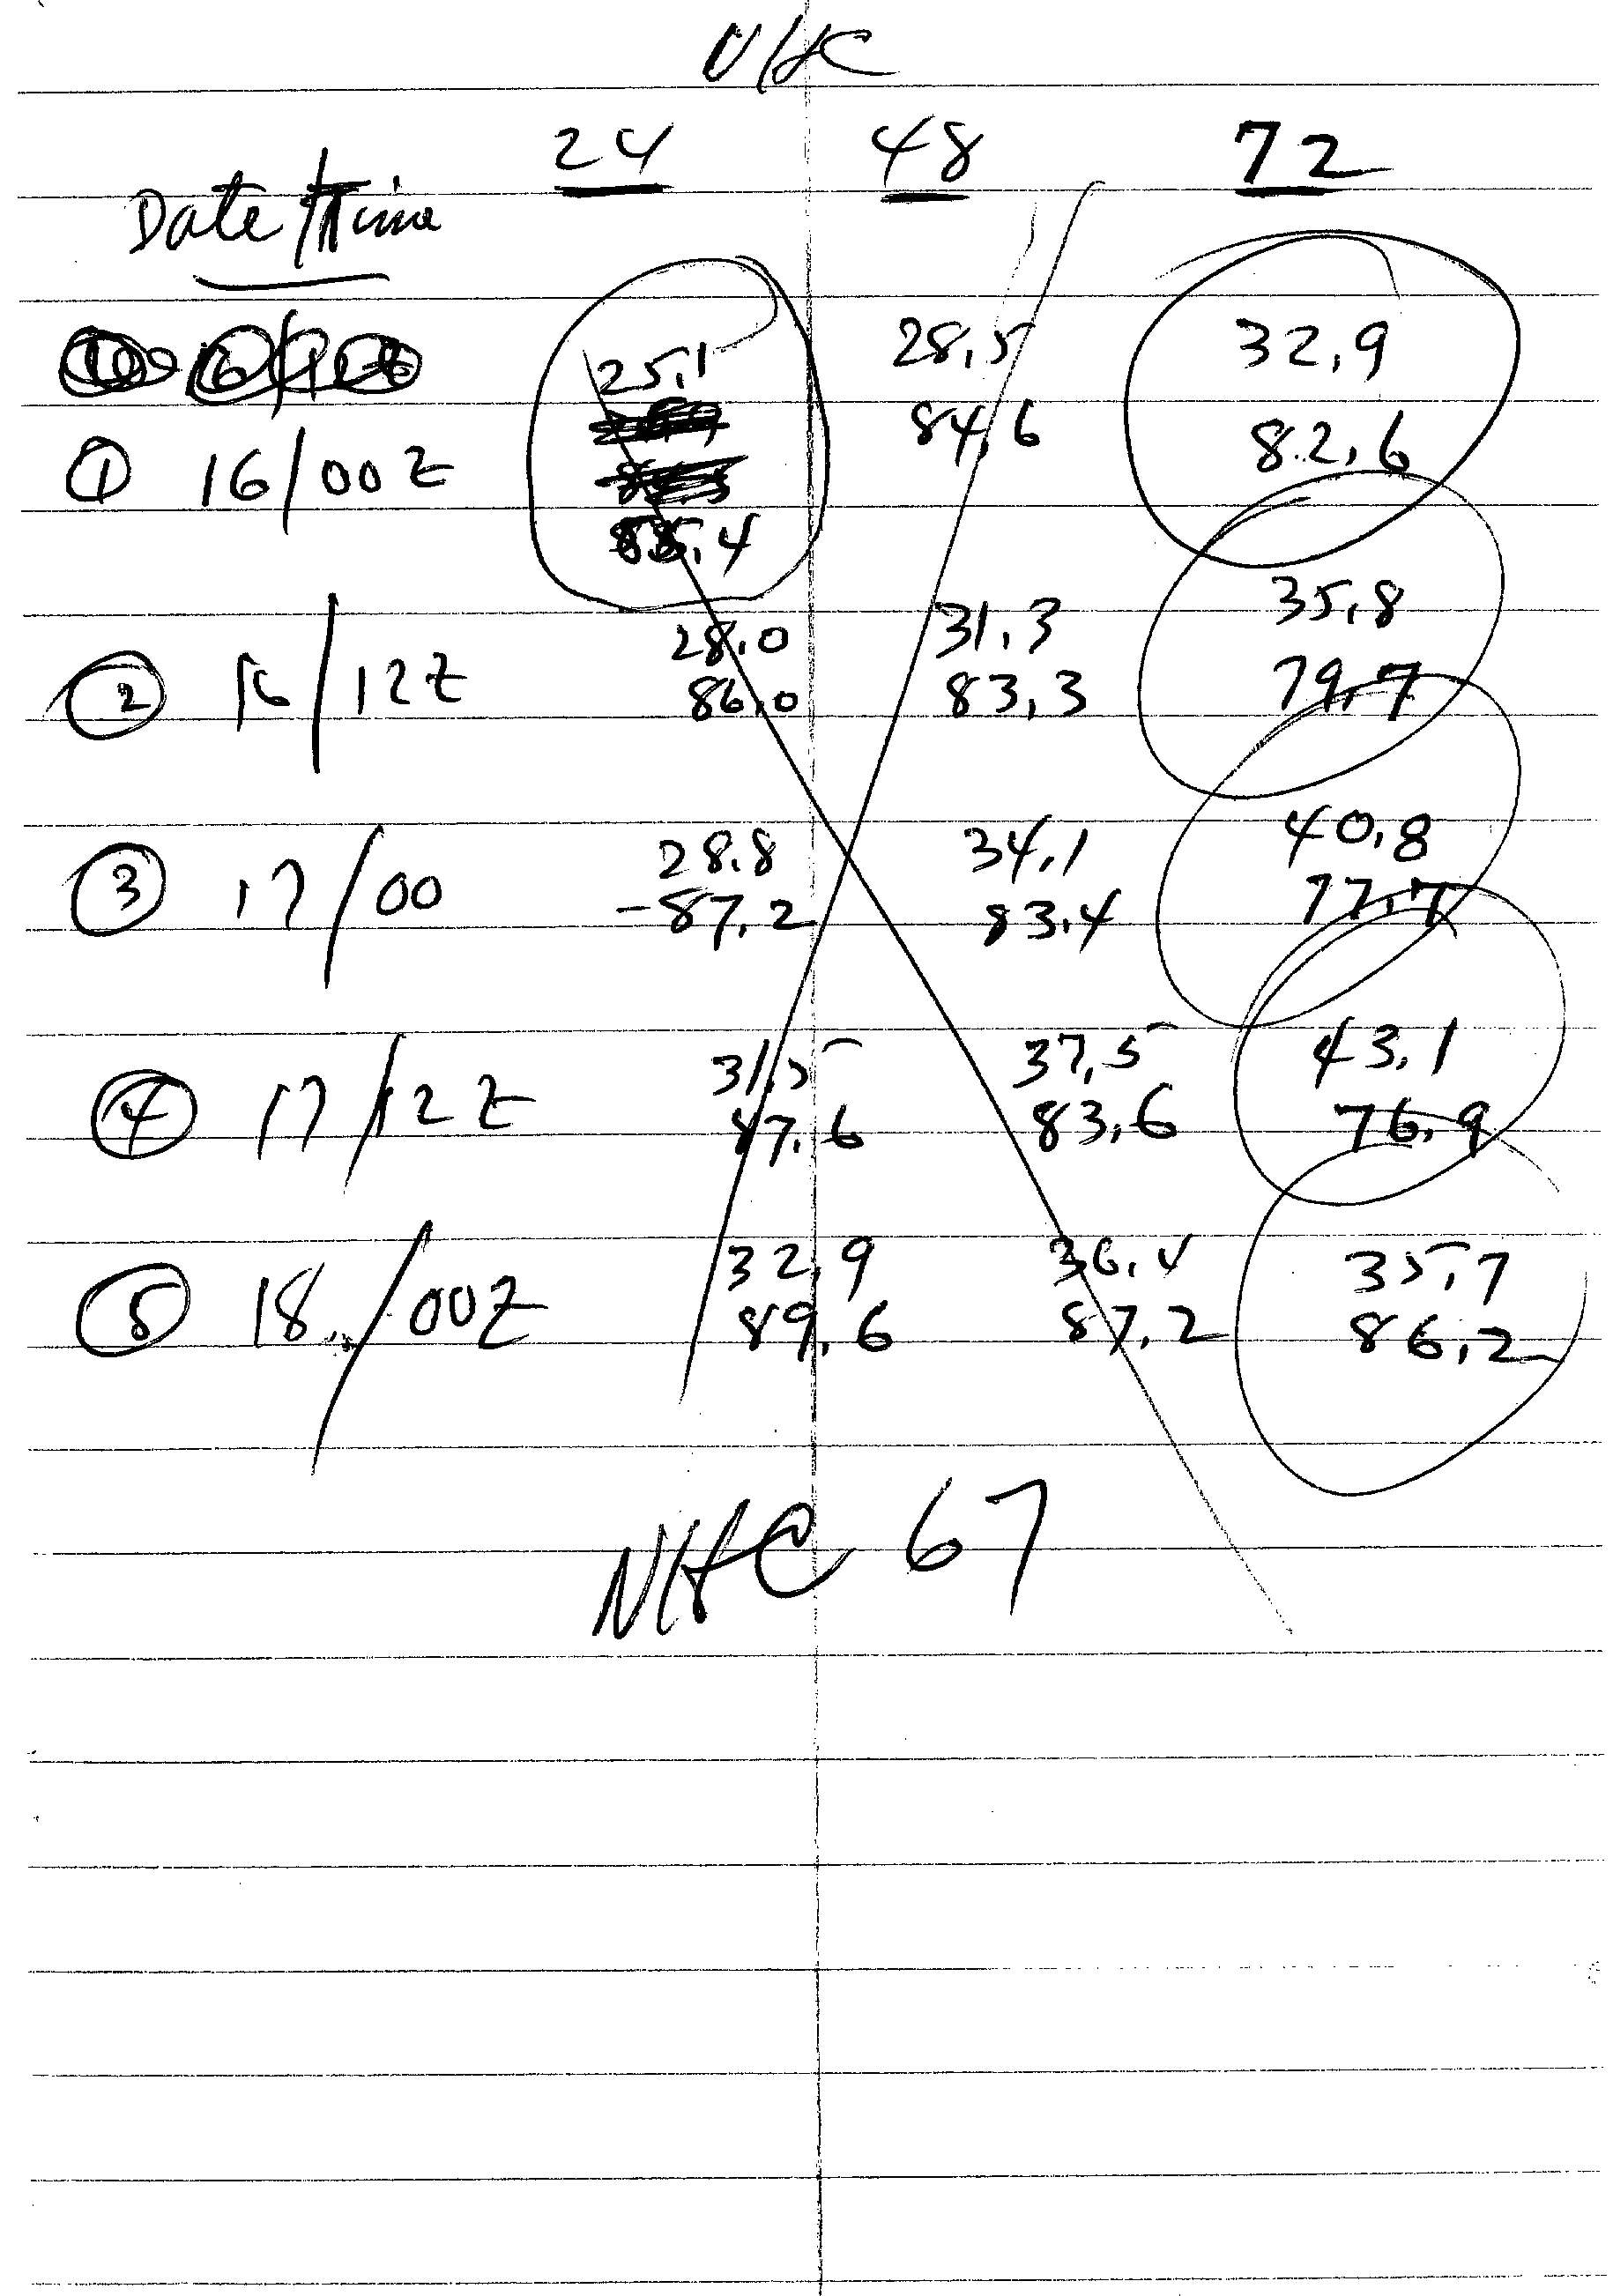 NHC
24 48 72
Date/Time
25.1 28.5 32.9
84.6 82.6
① 16/00Z
85.4
28.0 31.3 35.8
② 16/12Z 86.0 83.3 79.7
28.8 34.1 40.8
③ 17/00 -87.2 83.4 77.7
31.5 37.5 43.1
④ 17/12Z 87.6 83.6 76.9
32.9 36.4 35.7
⑤ 18/00Z 89.6 87.2 86.2
NHC 67